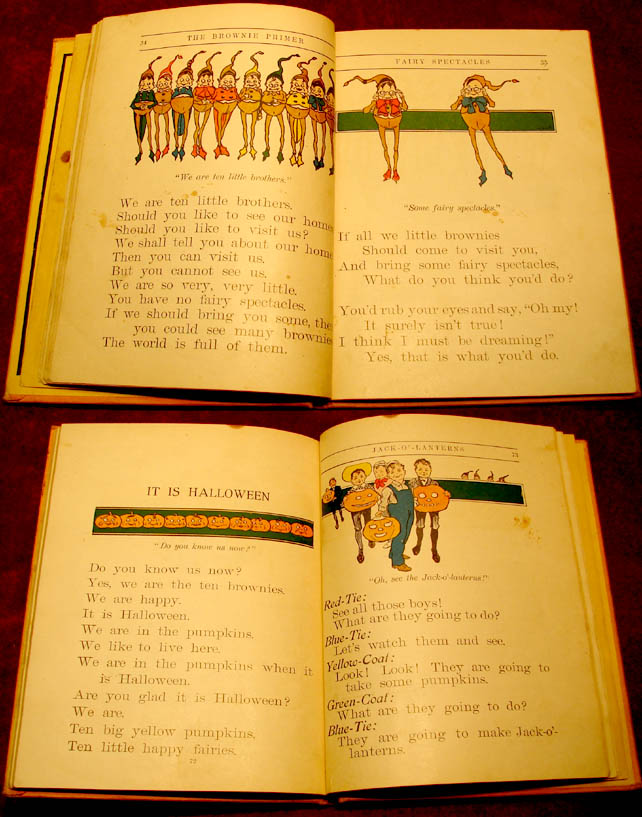 34 THE BROWNIE PRIMER
"We are ten little brothers."
We are ten little brothers.
Should you like to see our home
Should you like to visit us?
We shall tell you about our home
Then you can visit us.
But you cannot see us.
We are so very, very little.
You have no fairy spectacles.
If we should bring you some, the
you could see many brownies
The world is full of them.
FAIRY SPECTACLES 35
"Some fairy spectacles."
If all we little brownies
Should come to visit you,
And bring some fairy spectacles,
What do you think you'd do?
You'd rub your eyes and say, "Oh my!
It surely isn't true!
I think I must be dreaming!"
Yes, that is what you'd do.
IT IS HALLOWEEN
"Do you know us now?"
Do you know us now?
Yes, we are the ten brownies.
We are happy.
It is Halloween.
We are in the pumpkins.
We like to live here.
We are in the pumpkins when it
is Halloween.
Are you glad it is Halloween?
We are.
Ten big yellow pumpkins.
Ten little happy fairies.
72
JACK-O'-LANTERNS 73
"Oh, see the Jack-o'-lanterns!"
Red-Tie:
See all those boys!
What are they going to do?
Blue-Tie:
Let's watch them and see.
Yellow-Coat:
Look! Look! They are going to
take some pumpkins.
Green-Coat:
What are they going to do?
Blue-Tie:
They are going to make Jack-o'-
lanterns.